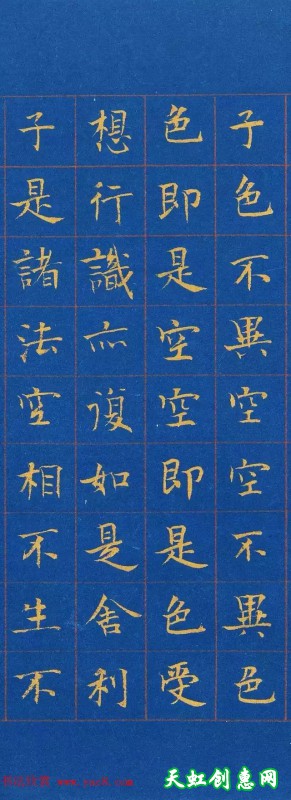 子色不異空空不異色
色即是空空即是色受
想行識亦復如是舍利
子是諸法空相不生不
天虹创惠网